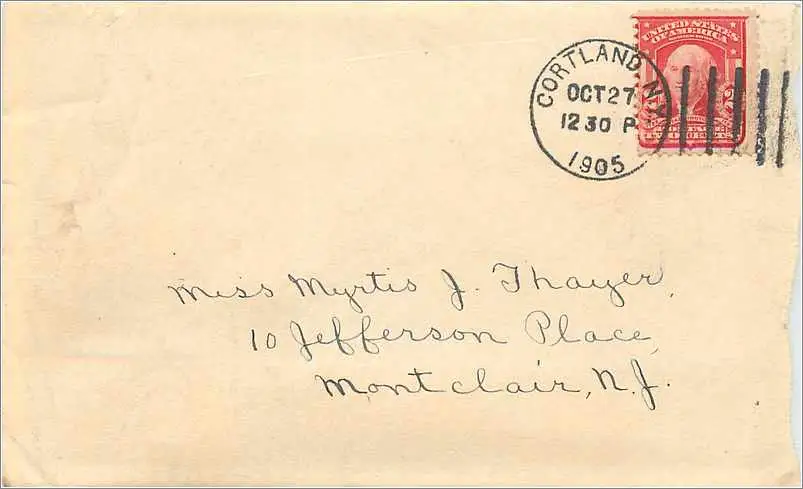 UNITED STATES
OF AMERICA
CORTLAND, N.Y.
OCT 27
12 30 P
1905
2
TWO CENTS
Miss Myrtis J. Thayer,
10 Jefferson Place,
Montclair, N.J.